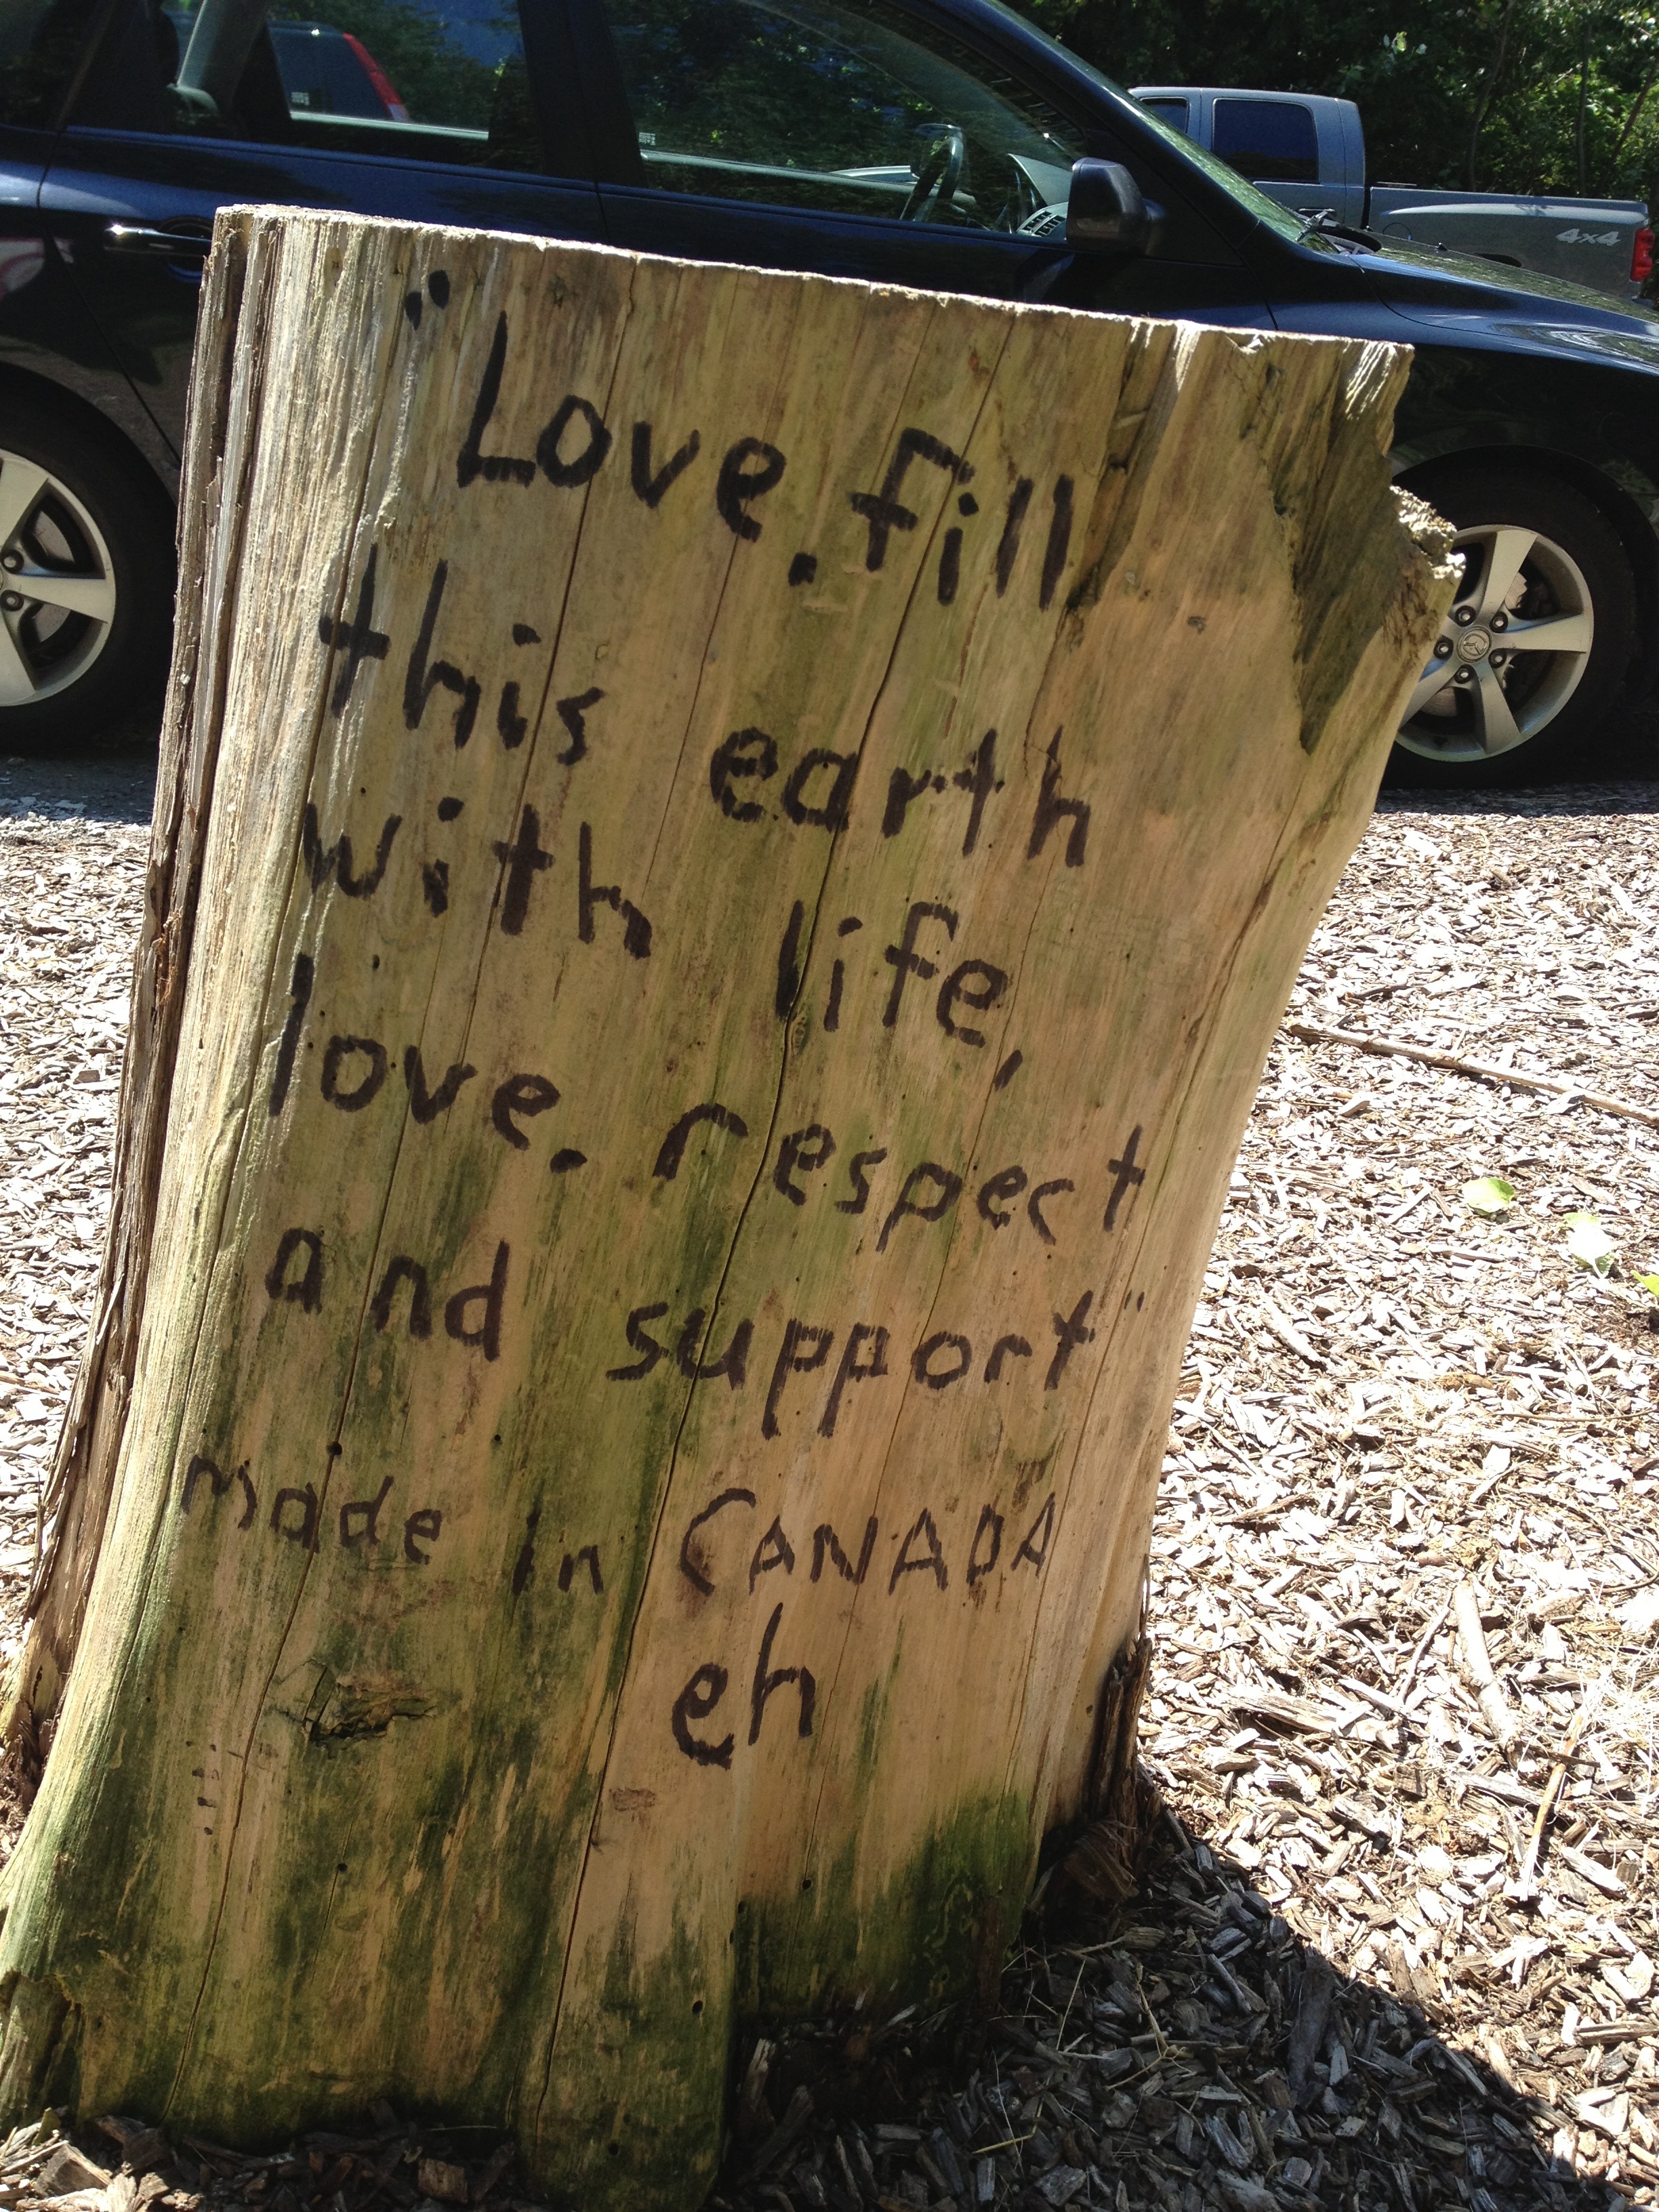 "Love.fill
this earth
with life,
love. respect
and support"
made in CANADA
eh
4x4